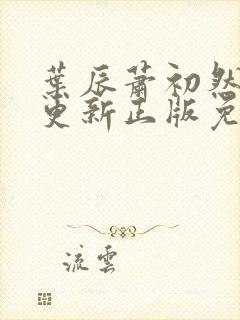 葉辰蕭初然
更新正版免
流雲